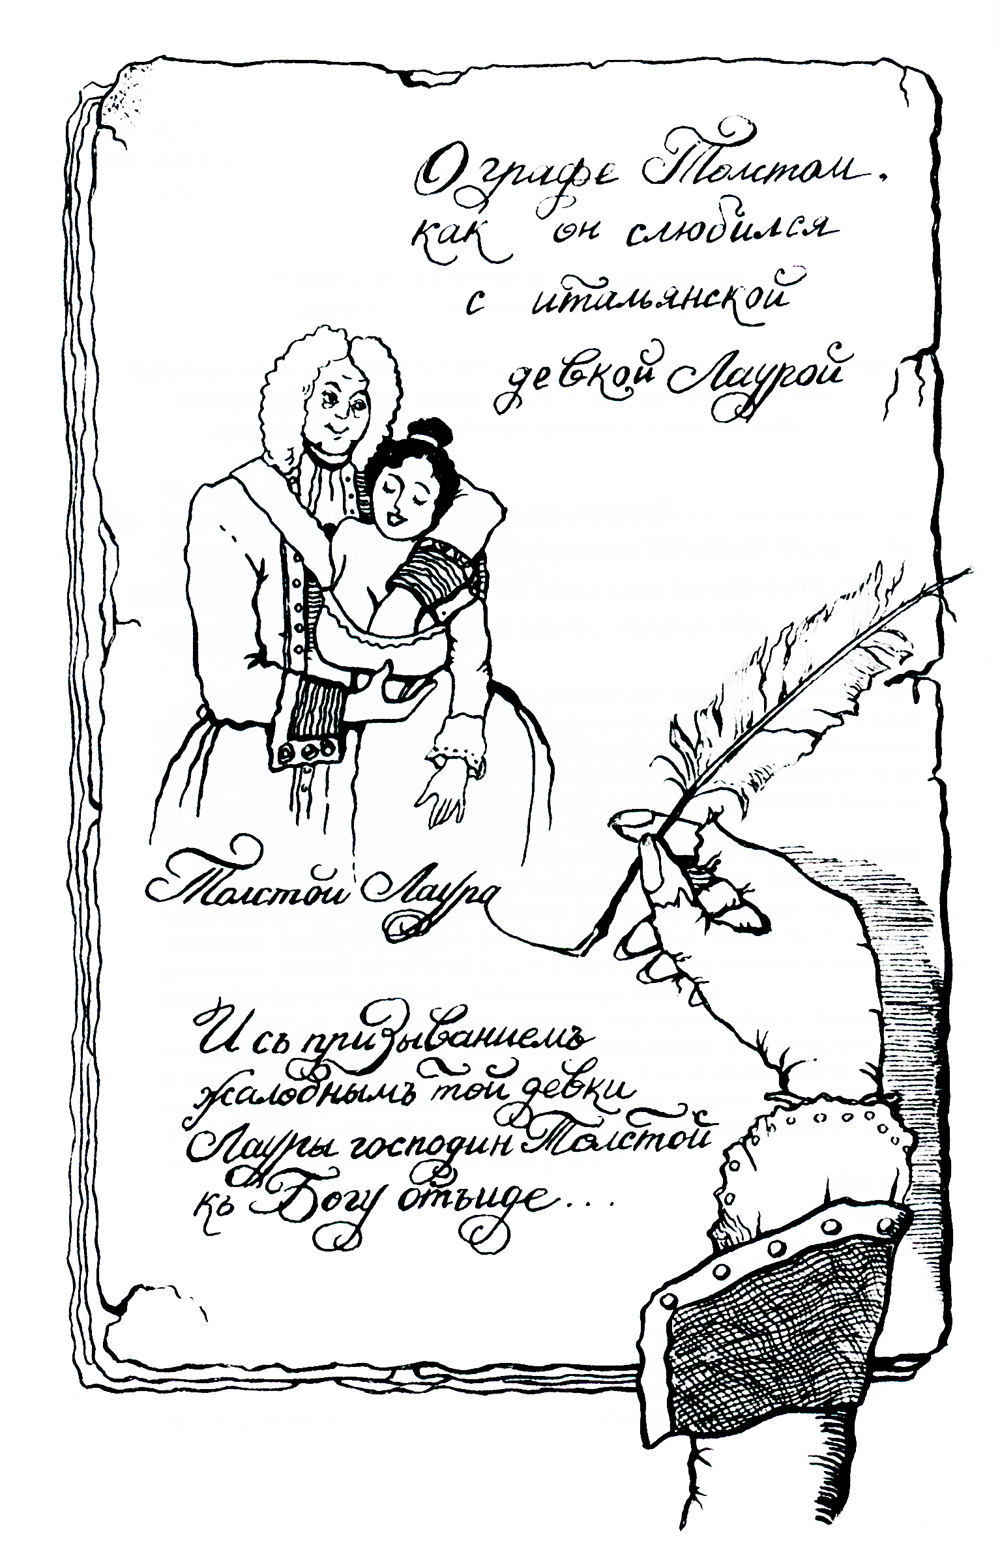 О графе Толстом.
как он слюбился
с итальянской
девкой Лаурой
Толстой Лаура
И съ призываниемъ
жалобнымъ той девки
Лауры господин Толстой
къ Богу отъиде...